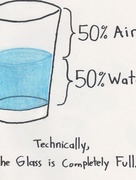 50% Air
50%
Technically,
Glass is Completely Full.